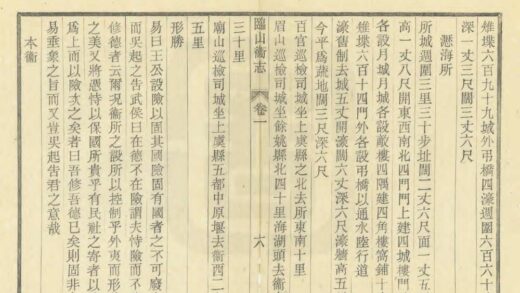 雉堞六百九十九城外弔橋四濠週圍六百六十
深一丈三尺闊三丈六尺
瀝海所
所城週圍三里三十步址闊二丈六尺面一丈五
高一丈八尺開東西南北四門門上建四城樓門
各設月城月城各設敵樓四隅建四角樓窩鋪十
雉堞六百十四門外各設弔橋以通水陸行道
濠舊制去城五丈開濠闊六丈深六尺濠墻高五
今平爲蔬地闊三尺深六尺
百官巡檢司城坐上虞縣之北去所東南十里
眉山巡檢司城坐餘姚縣北四十里海湖頭去衛
臨山衛志
卷一
六
三十里
廟山巡檢司城坐上虞縣五都中原堰去衛西二
五里
形勝
易曰王公設險以固其國險固有國者之不可廢
吳起之告武侯曰在德不在險謂夫恃險而不
修德者云爾况衛所之設所以控制乎外夷而形
之美又將憑恃以保國所貴乎有民社之寄者以
爲上而以險次之矣者曰吾修吾德已矣則固非
易垂象之旨而又豈吳起告君之意哉
本衛